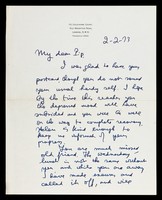 2-2-79
My dear Zip,
I was glad to have your
postcard though you do not sound
your usual hardy self. I hope
by the time this reaches you
the depressed mood will have
subsided and you were & well
on the way to complete recovery.
Helen is kind enough to
keep me informed of your
progress.
You are much missed
old friend. The Wednesday
lunch is not the same without
you and while you are away
I have made excuses and
called it off, and will